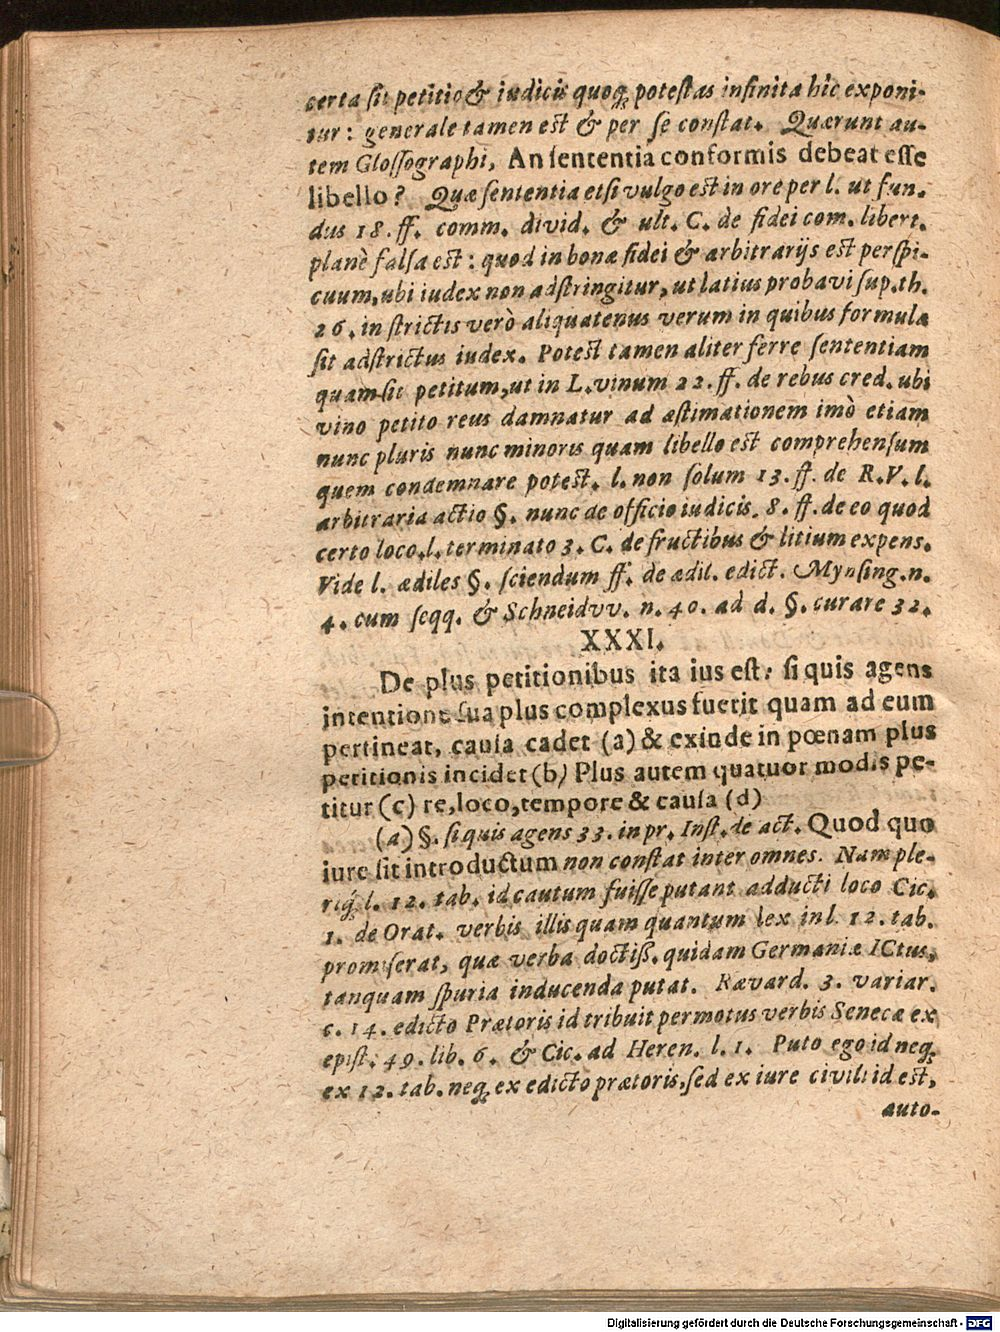 certa sit petitio & iudicis quoq; potestas infinita hîc exponi-
tur: generale tamen est & per se constat. Quærunt au-
tem Glossographi, An sententia conformis debeat esse
libello? Quæ sententia etsi vulgo est in ore per l. ut fun-
dus 18. ff. comm. divid. & ult. C. de fidei com. libert.
planè falsa est: quod in bonæ fidei & arbitrarijs est perspi-
cuum, ubi iudex non adstringitur, ut latius probavi sup. th.
26. in strictis verò aliquatenus verum in quibus formulæ
sit adstrictus iudex. Potest tamen aliter ferre sententiam
quam sit petitum, ut in L. vinum 22. ff. de rebus cred. ubi
vino petito reus damnatur ad æstimationem imò etiam
nunc pluris nunc minoris quam libello est comprehensum
quem condemnare potest. l. non solum 13. ff. de R.V. l.
arbitraria actio §. nunc de officio iudicis. 8. ff. de eo quod
certo loco. l. terminato 3. C. de fructibus & litium expens.
Vide l. ædiles §. sciendum ff. de ædil. edict. Mynsing. n.
4. cum seqq. & Schneidvv. n. 40. ad d. §. curare 32.
XXXI.
De plus petitionibus ita ius est: si quis agens
intentione sua plus complexus fuerit quam ad eum
pertineat, causa cadet (a) & exinde in pœnam plus
petitionis incidet (b) Plus autem quatuor modis pe-
titur (c) re, loco, tempore & causa (d)
(a) §. si quis agens 33. in pr. Inst. de act. Quod quo
iure sit introductum non constat inter omnes. Nam ple-
riq; l. 12. tab. id cautum fuisse putant adducti loco Cic.
1. de Orat. verbis illis quam quantum lex in l. 12. tab.
promiserat, quæ verba doctiss. quidam Germaniæ ICtus,
tanquam spuria inducenda putat. Rævard. 3. variar.
c. 14. edicto Prætoris id tribuit permotus verbis Senecæ ex
epist. 49. lib. 6. & Cic. ad Heren. l. 1. Puto ego id neq;
ex 12. tab. neq; ex edicto prætoris, sed ex iure civili id est,
auto-
Digitalisierung gefördert durch die Deutsche Forschungsgemeinschaft - DFG